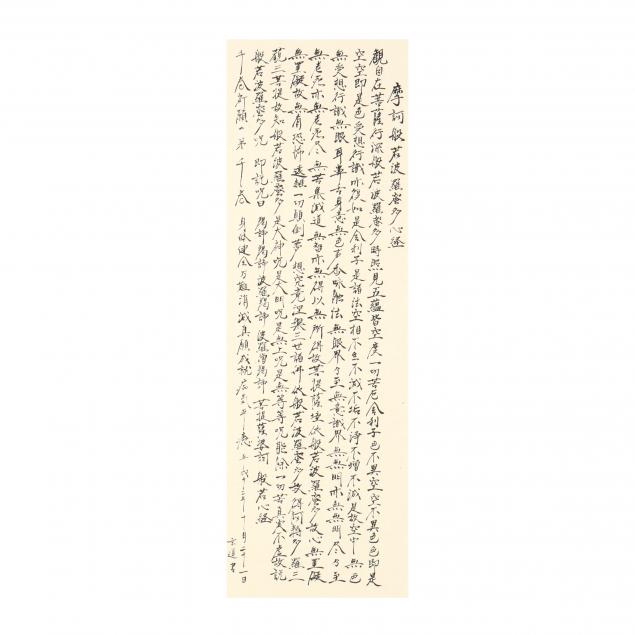 摩訶般若波羅蜜多心経
觀自在菩薩行深般若波羅蜜多時照見五蘊皆空度一切苦厄舎利子色不異空空不異色色即是
空空即是色受想行識亦復如是舎利子是諸法空相不生不滅不垢不浄不増不減是故空中無色
無受想行識無眼耳鼻舌身意無色声香味触法無眼界乃至無意識界無無明亦無無明尽乃至
無老死亦無老死尽無苦集滅道無智亦無得以無所得故菩提薩埵依般若波羅蜜多故心無罣礙
無罣礙故無有恐怖遠離一切顛倒夢想究竟涅槃三世諸仏依般若波羅蜜多故得阿耨多羅三
藐三菩提故知般若波羅蜜多是大神呪是大明呪是無上呪是無等等呪能除一切苦真実不虚故説
般若波羅蜜多呪 即説呪曰 羯諦羯諦 波羅羯諦 波羅僧羯諦 菩提薩婆訶 般若心経
千巻祈願 第千巻 身体健全万難消滅真願成就 十月二十一日